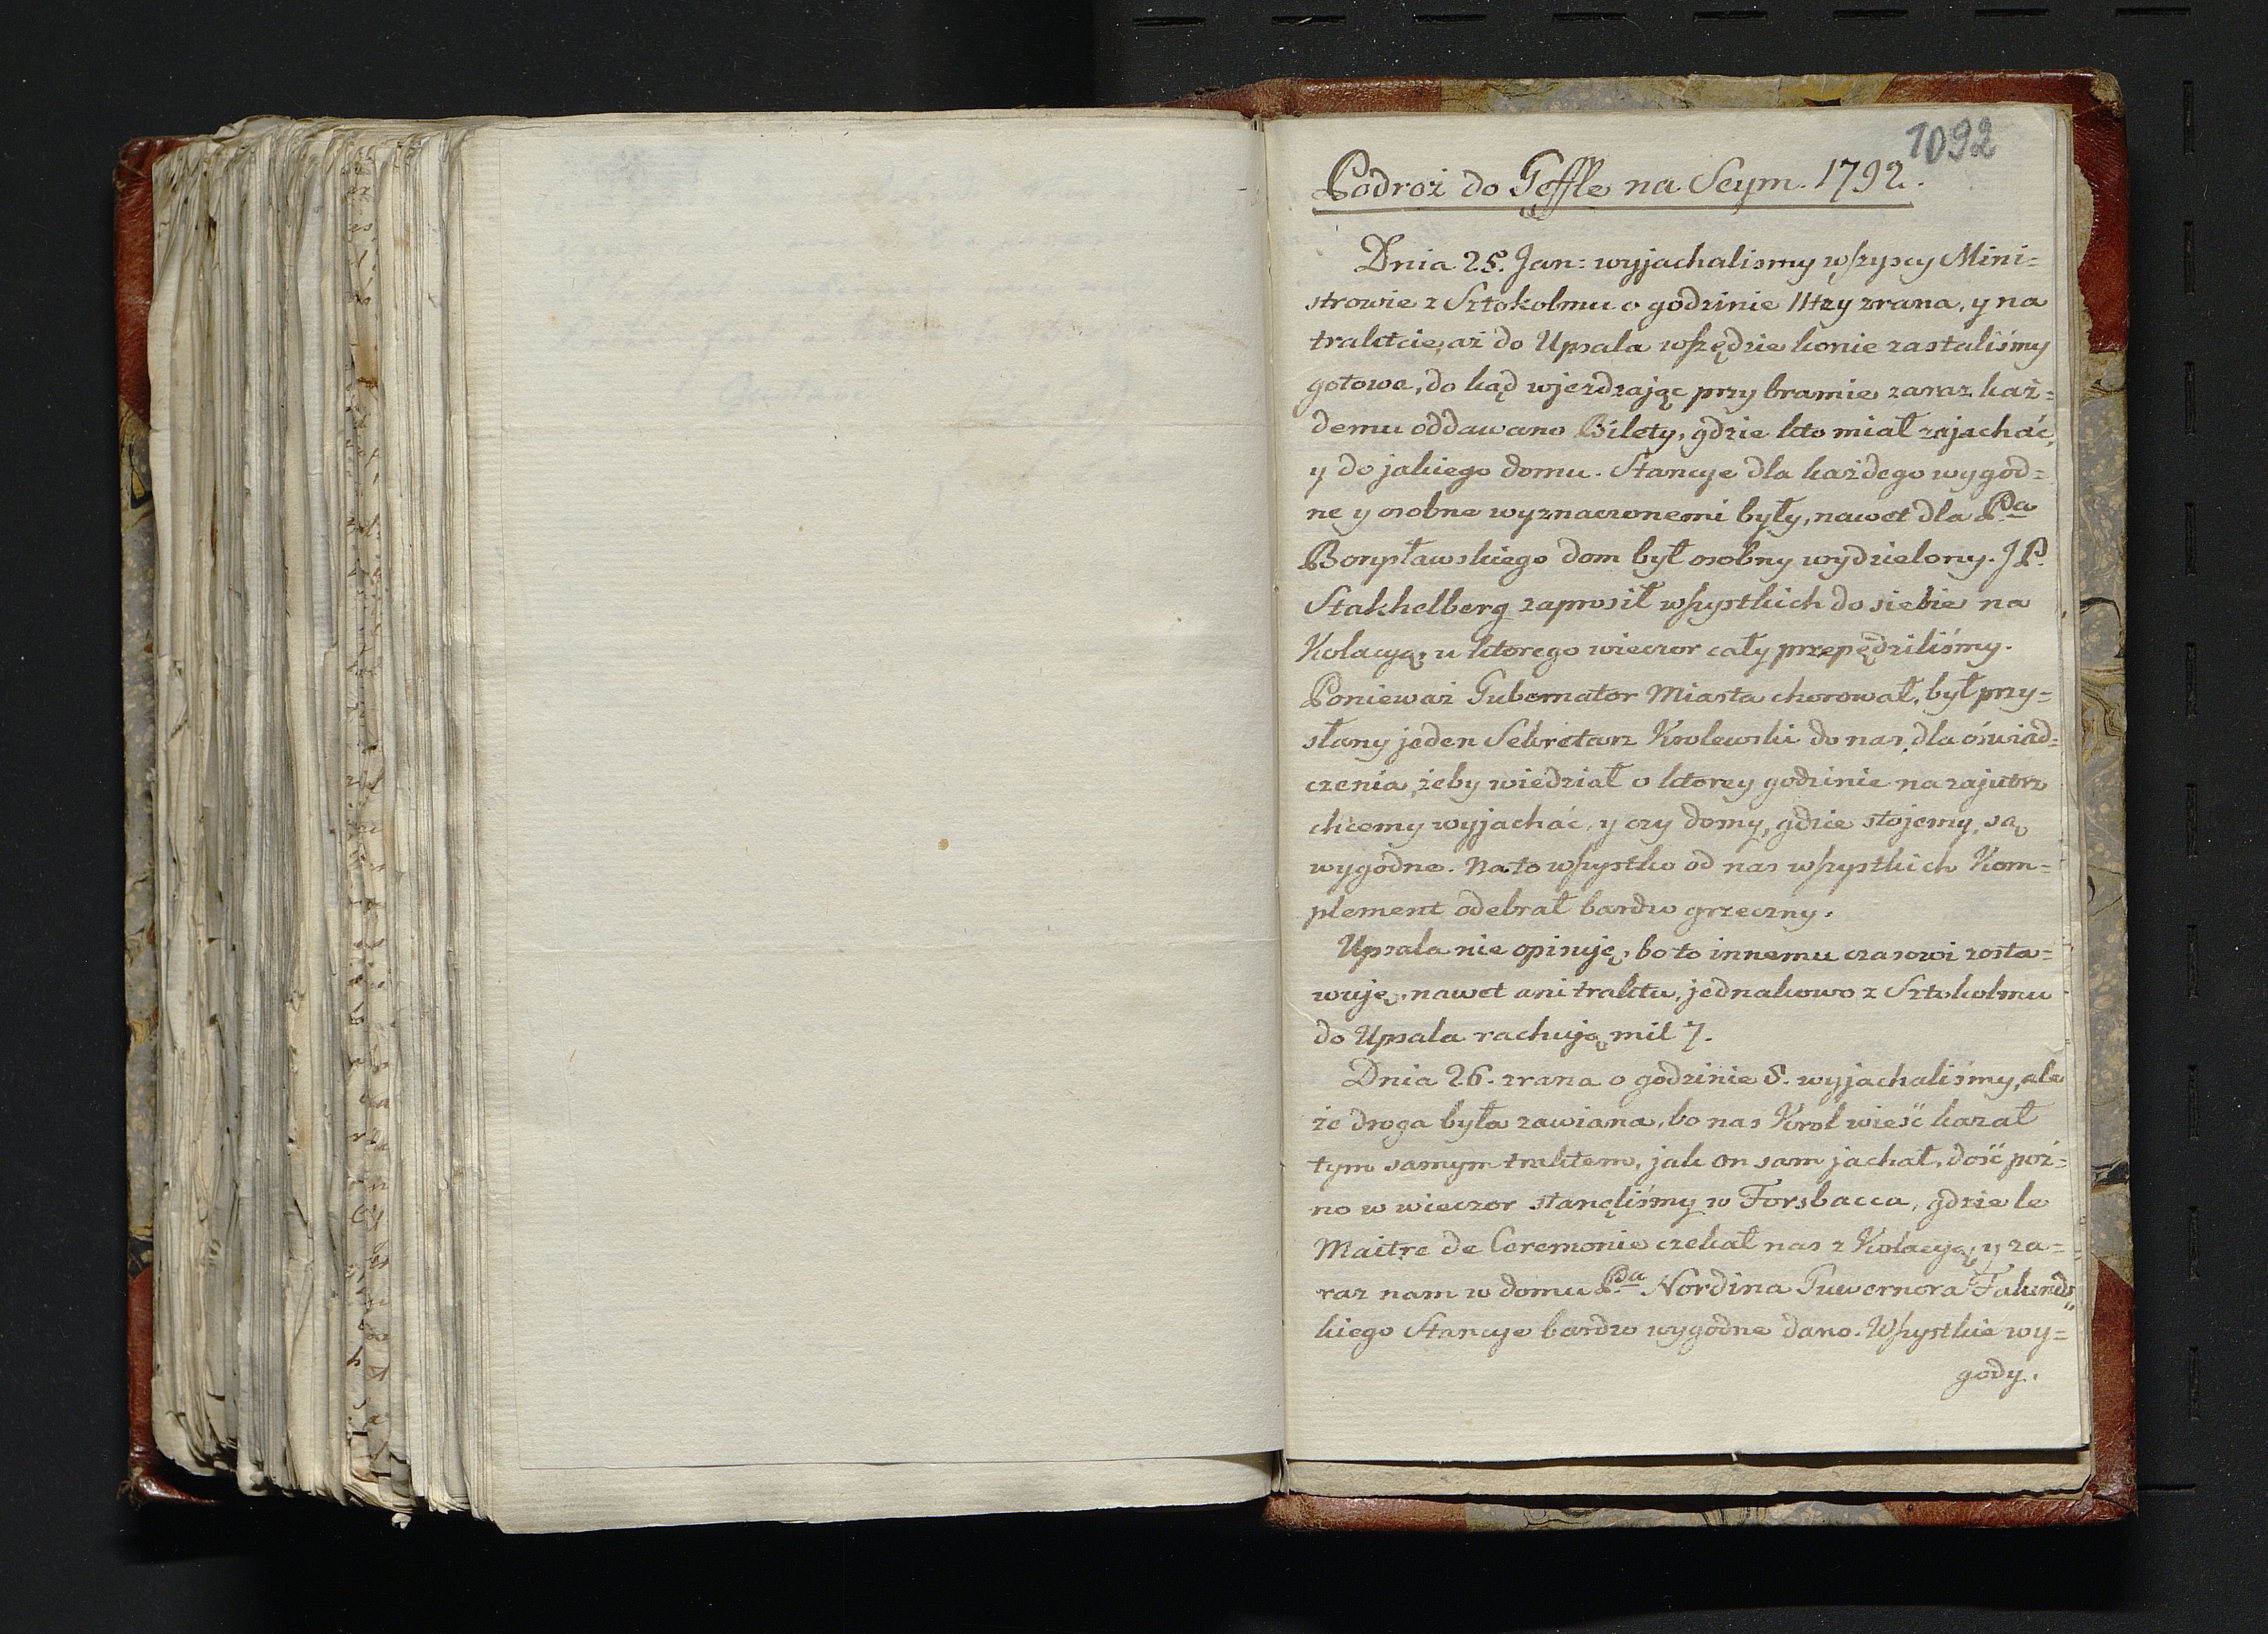 1092
Podroż do Geffle na Seym. 1792.
Dnia 25. Jan: wyjachalismy wszyscy Mini=
strowie z Sztokolmu o godzinie 11tey zrana, y na
traktcie, aż do Upsala wszędzie konie zastaliśmy
gotowe, do kąd wjezdzając przy bramie zaraz każ=
demu oddawano Bilety, gdzie kto miał zajachać,
y do jakiego domu. Stancye dla każdego wygod=
ne y osobne wyznaczonemi były, nawet dla Pda
Bonpławskiego dom był osobny wydzielony. JP.
Stakhelberg zaprosił wszystkich do siebie na
Kolacyą, u ktorego wieczor cały przepędziliśmy.
Ponieważ Gubernator Miasta chorował, był przy=
słany jeden Sekretarz Krolewski do nas, dla oświad=
czenia, żeby wiedział o ktorey godzinie nazajutrz
chcemy wyjachać, y czy domy, gdzie stojemy, są
wygodne. Na to wszystko od nas wszystkich Kom=
plement odebrał bardzo grzeczny.
Upsala nie opisuję, bo to innemu czasowi zosta=
wuję, nawet ani traktu, jednakowo z Sztokolmu
do Upsala rachują mil 7.
Dnia 26. zrana o godzinie 8. wyjachaliśmy, ale
że droga była zawiana, bo nas Krol wieść kazał
tym samym traktem, jak on sam jachał, dość poź=
no w wieczor stanęliśmy w Forsbacca, gdzie le
Maitre de Ceremonie czekał nas z Kolacyą, y za=
raz nam w domu Pda Nordina Guwernora Falunds
kiego Stancye bardzo wygodne dano. Wszystkie wy=
gody.